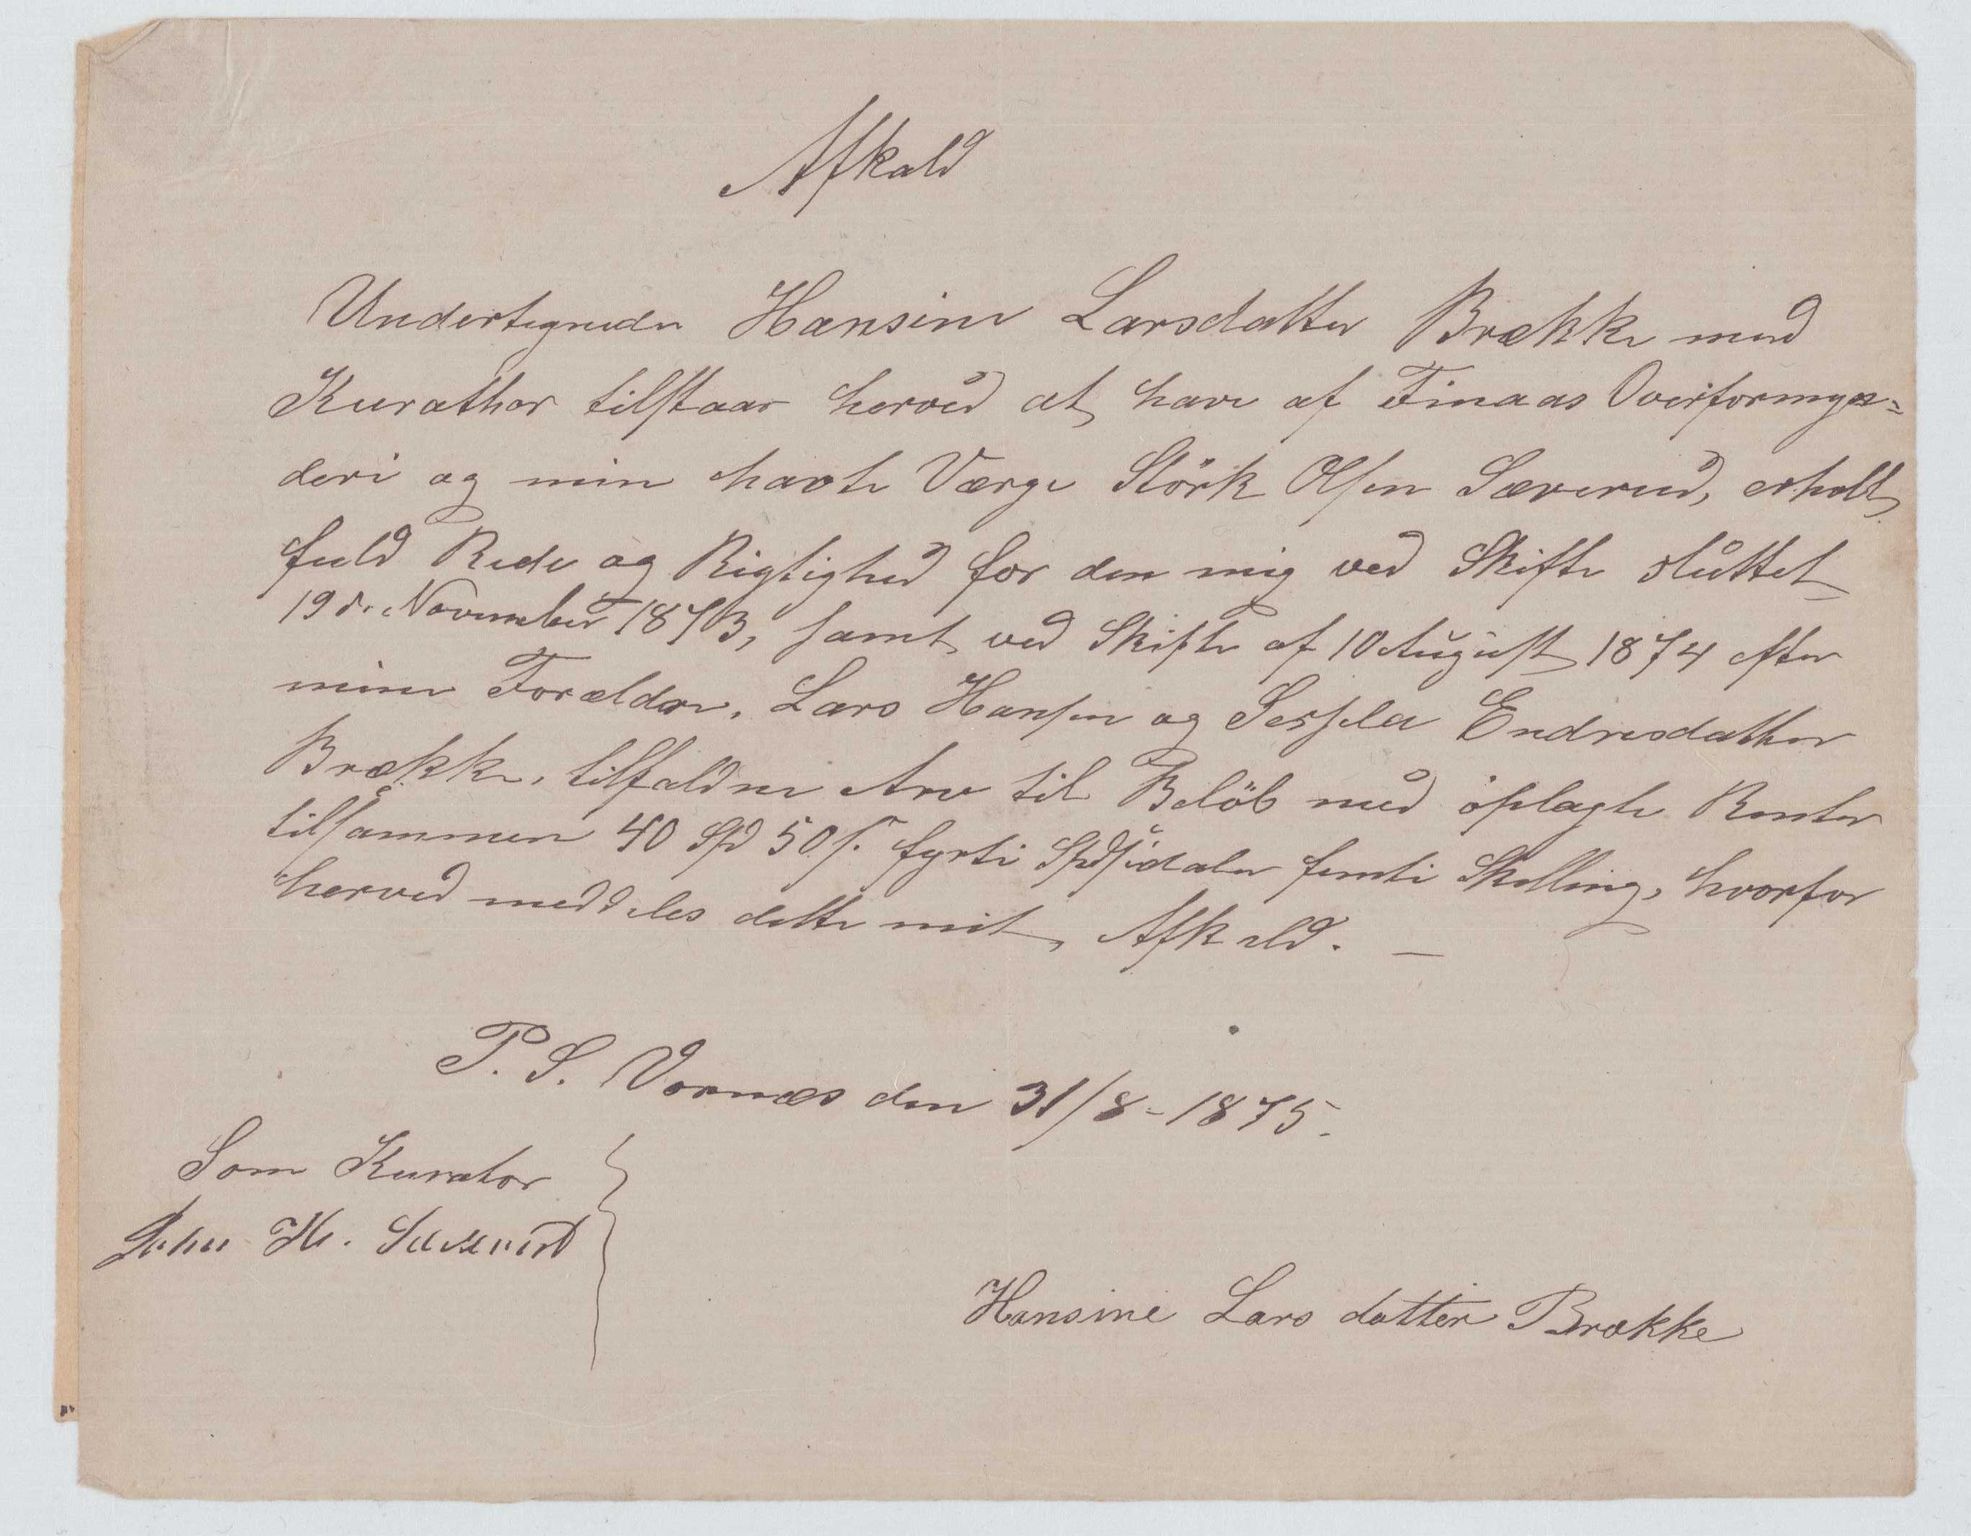 Afkald
Undertegnede Hansine Larsdatter Brække med
Kurathor tilstaar herved at have af Finaas Overformyn=
deri og min havte Værge Störk Olsen Sæverud, erholt
fuld Rede og Rigtighed for den mig ved Skifte sluttet
19de November 1873, samt ved Skifte af 10 August 1874 efter
mine Forældre, Lars Hansen og Sessela Endresdatter
Brække, tilfaldne Arv til Belöb med oplagte Renter
tilsammen 40 Spd 50 s. fyrti Spesidaler femti Skilling, hvorfor
herved meddeles dette mit Afkald. —
P. S. Vornæs den 31/8 - 1875.
Som Kurator
John H.
Hansine Lars datter Brække